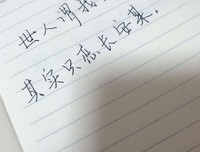 世人谓我
其实只恋长安某。